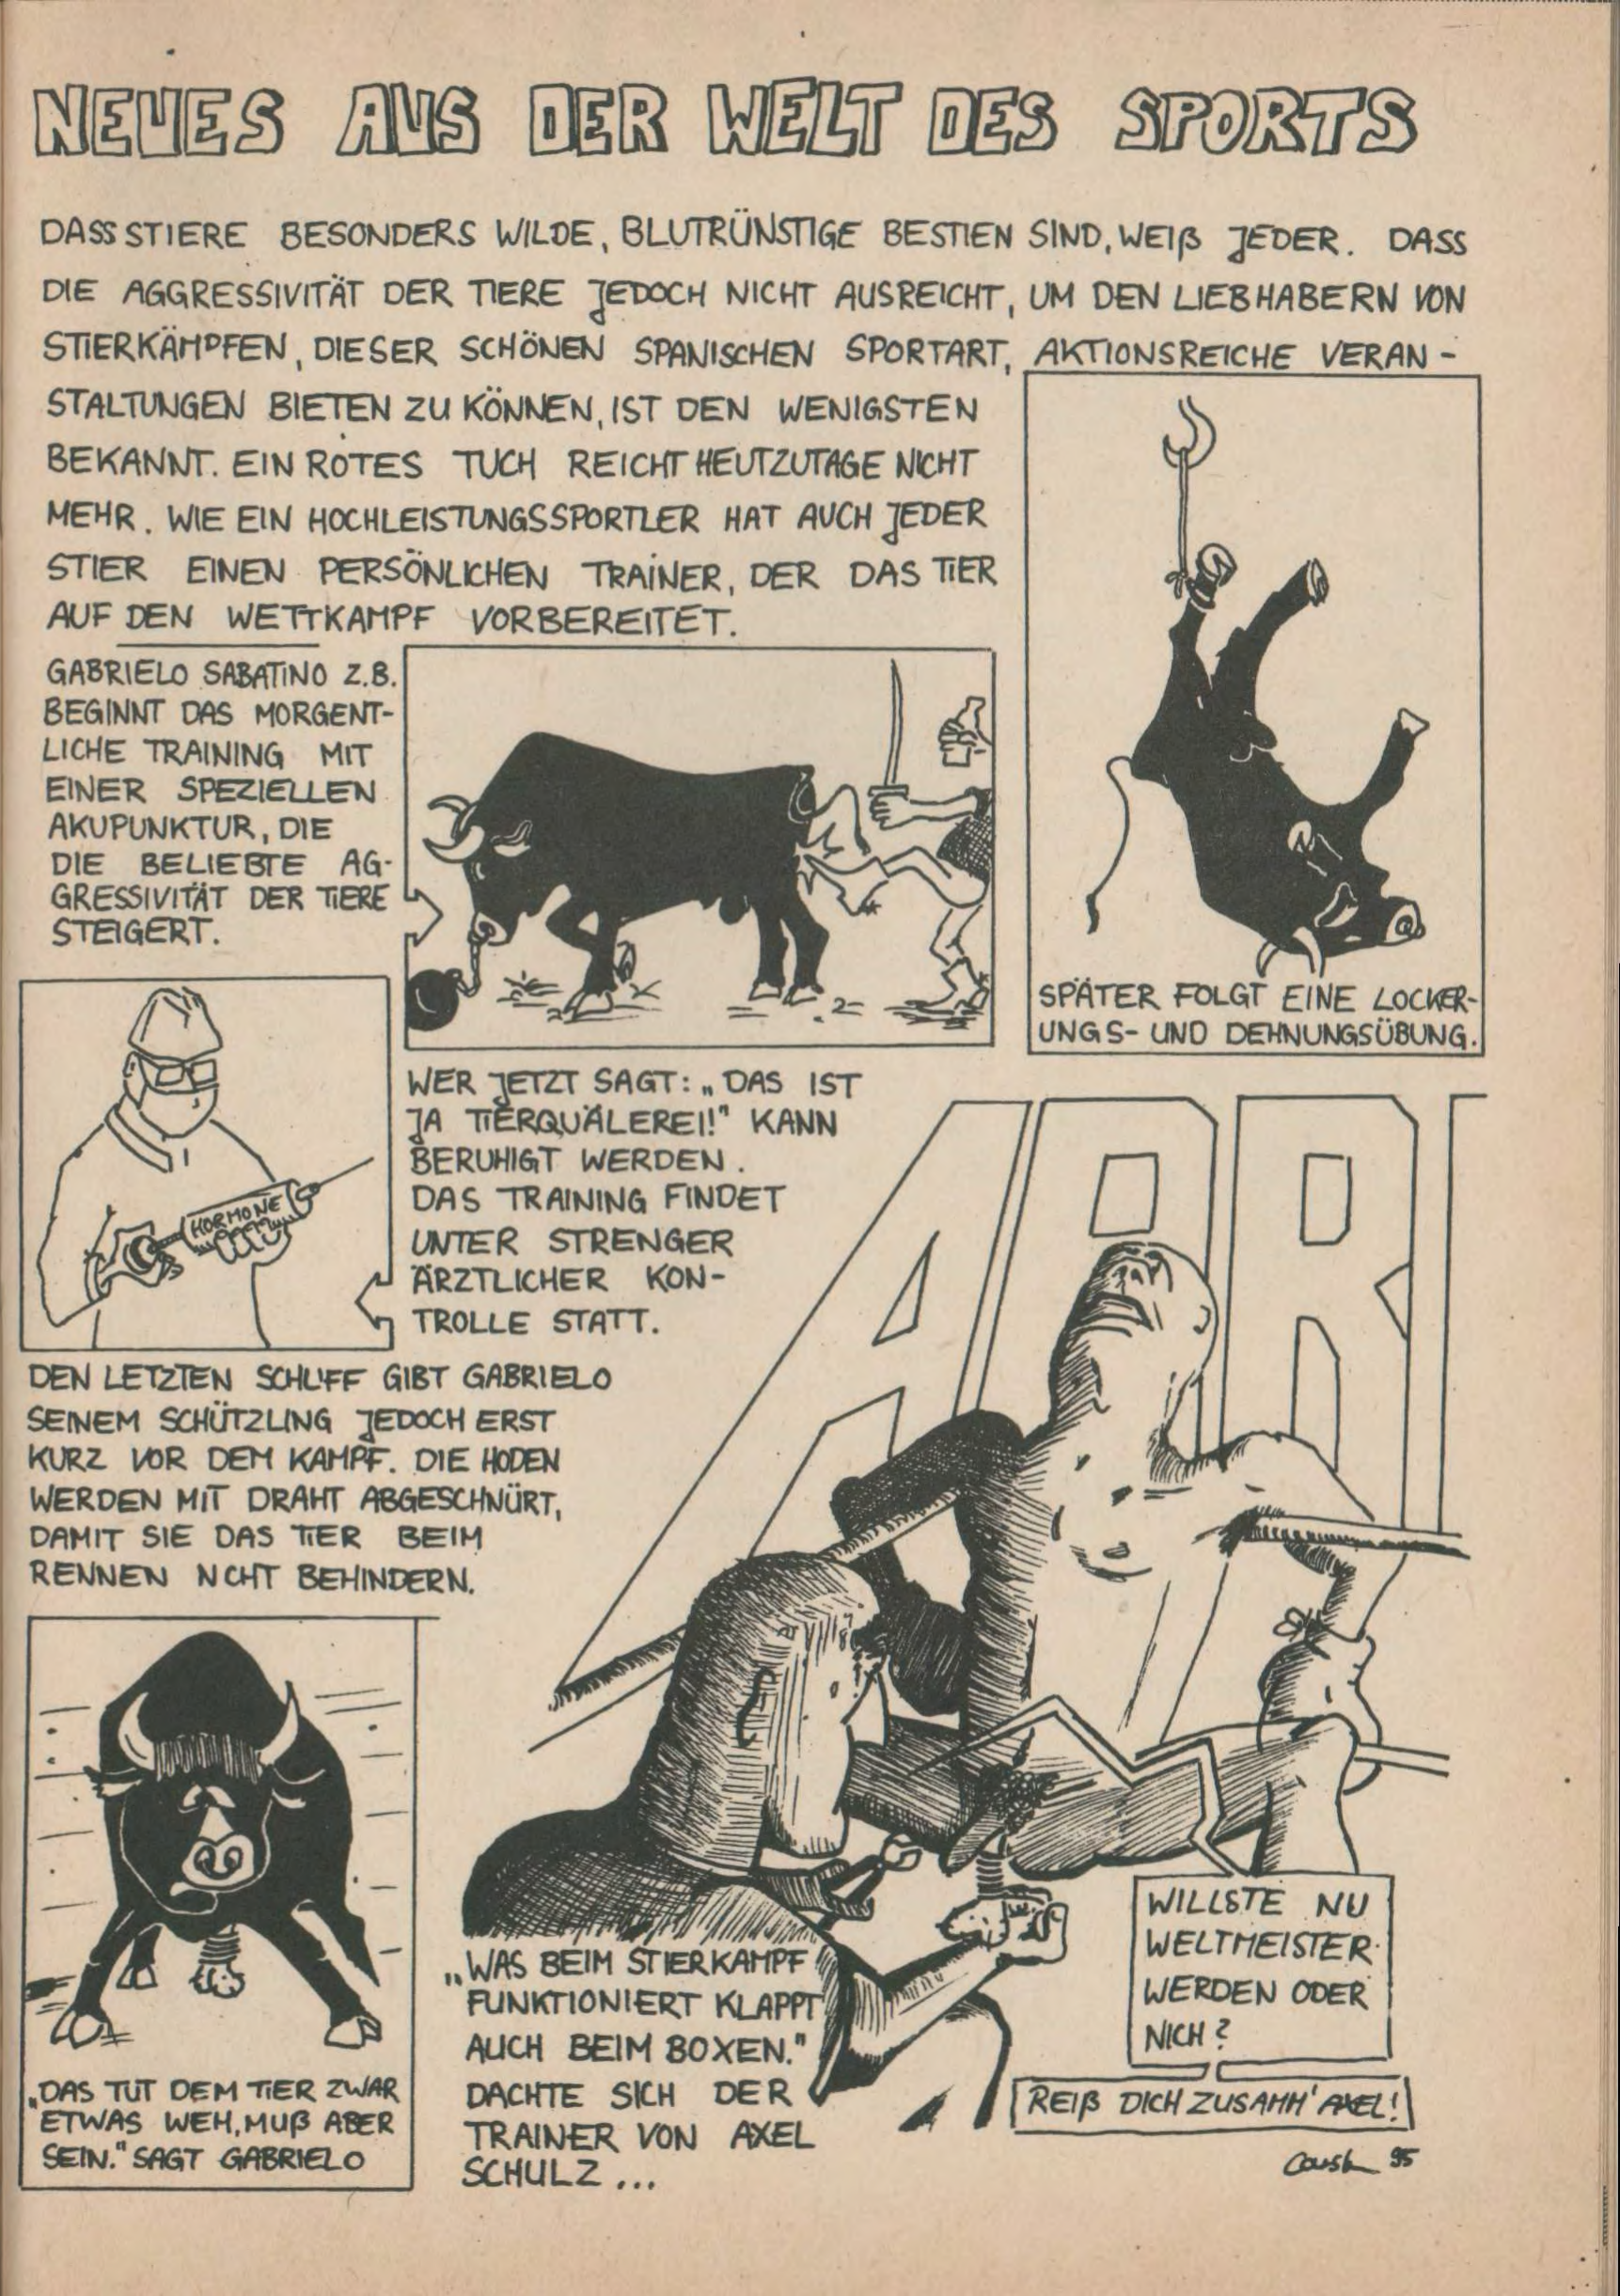 NEUES AUS DER WELT DES SPORTS
DASS STIERE BESONDERS WILDE, BLUTRÜNSTIGE BESTIEN SIND, WEIß JEDER. DASS
DIE AGGRESSIVITÄT DER TIERE JEDOCH NICHT AUSREICHT, UM DEN LIEBHABERN VON
STIERKÄMPFEN, DIESER SCHÖNEN SPANISCHEN SPORTART, AKTIONSREICHE VERAN-
STALTUNGEN BIETEN ZU KÖNNEN, IST DEN WENIGSTEN
BEKANNT. EIN ROTES TUCH REICHT HEUTZUTAGE NICHT
MEHR. WIE EIN HOCHLEISTUNGSSPORTLER HAT AUCH JEDER
STIER EINEN PERSÖNLICHEN TRAINER, DER DAS TIER
AUF DEN WETTKAMPF VORBEREITET.
GABRIELO SABATINO Z.B.
BEGINNT DAS MORGENT-
LICHE TRAINING MIT
EINER SPEZIELLEN
AKUPUNKTUR, DIE
DIE BELIEBTE AG-
GRESSIVITÄT DER TIERE
STEIGERT.
SPÄTER FOLGT EINE LOCKER-
UNGS- UND DEHNUNGSÜBUNG.
HORMONE
WER JETZT SAGT: „DAS IST
JA TIERQUÄLEREI!" KANN
BERUHIGT WERDEN.
DAS TRAINING FINDET
UNTER STRENGER
ÄRZTLICHER KON-
TROLLE STATT.
DEN LETZTEN SCHLIFF GIBT GABRIELO
SEINEM SCHÜTZLING JEDOCH ERST
KURZ VOR DEM KAMPF. DIE HODEN
WERDEN MIT DRAHT ABGESCHNÜRT,
DAMIT SIE DAS TIER BEIM
RENNEN NCHT BEHINDERN.
„DAS TUT DEM TIER ZWAR
ETWAS WEH, MUß ABER
SEIN." SAGT GABRIELO
ARR
„WAS BEIM STIERKAMPF
FUNKTIONIERT KLAPPT
AUCH BEIM BOXEN."
DACHTE SICH DER
TRAINER VON AXEL
SCHULZ ...
WILLSTE NU
WELTMEISTER
WERDEN ODER
NICH?
REIß DICH ZUSAMM' AXEL!
95